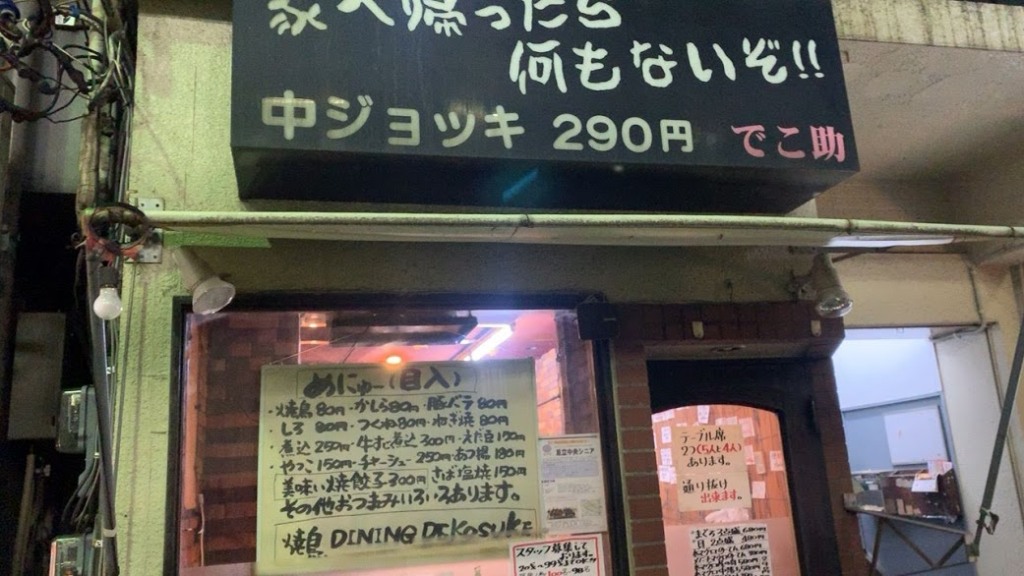 家へ帰ったら
何もないぞ!!
中ジョッキ 290円 でこ助
めにゅー(目入)
・焼鳥80円・かしら80円・豚バラ80円
・しろ80円・つくね80円・ねぎ焼80円
・煮込250円・牛すじ煮込300円・えだ豆150円
・やっこ150円・チャーシュー250円・あつ揚180円
美味い焼餃子300円 さば塩焼150円
その他おつまみいろいろあります。
焼鳥 DINING DEKOSUKE
足立中央シニア
スタッフ募集して
おります。
テーブル席
2つ(5人と4人)
あります。
通り抜け
出来ます。